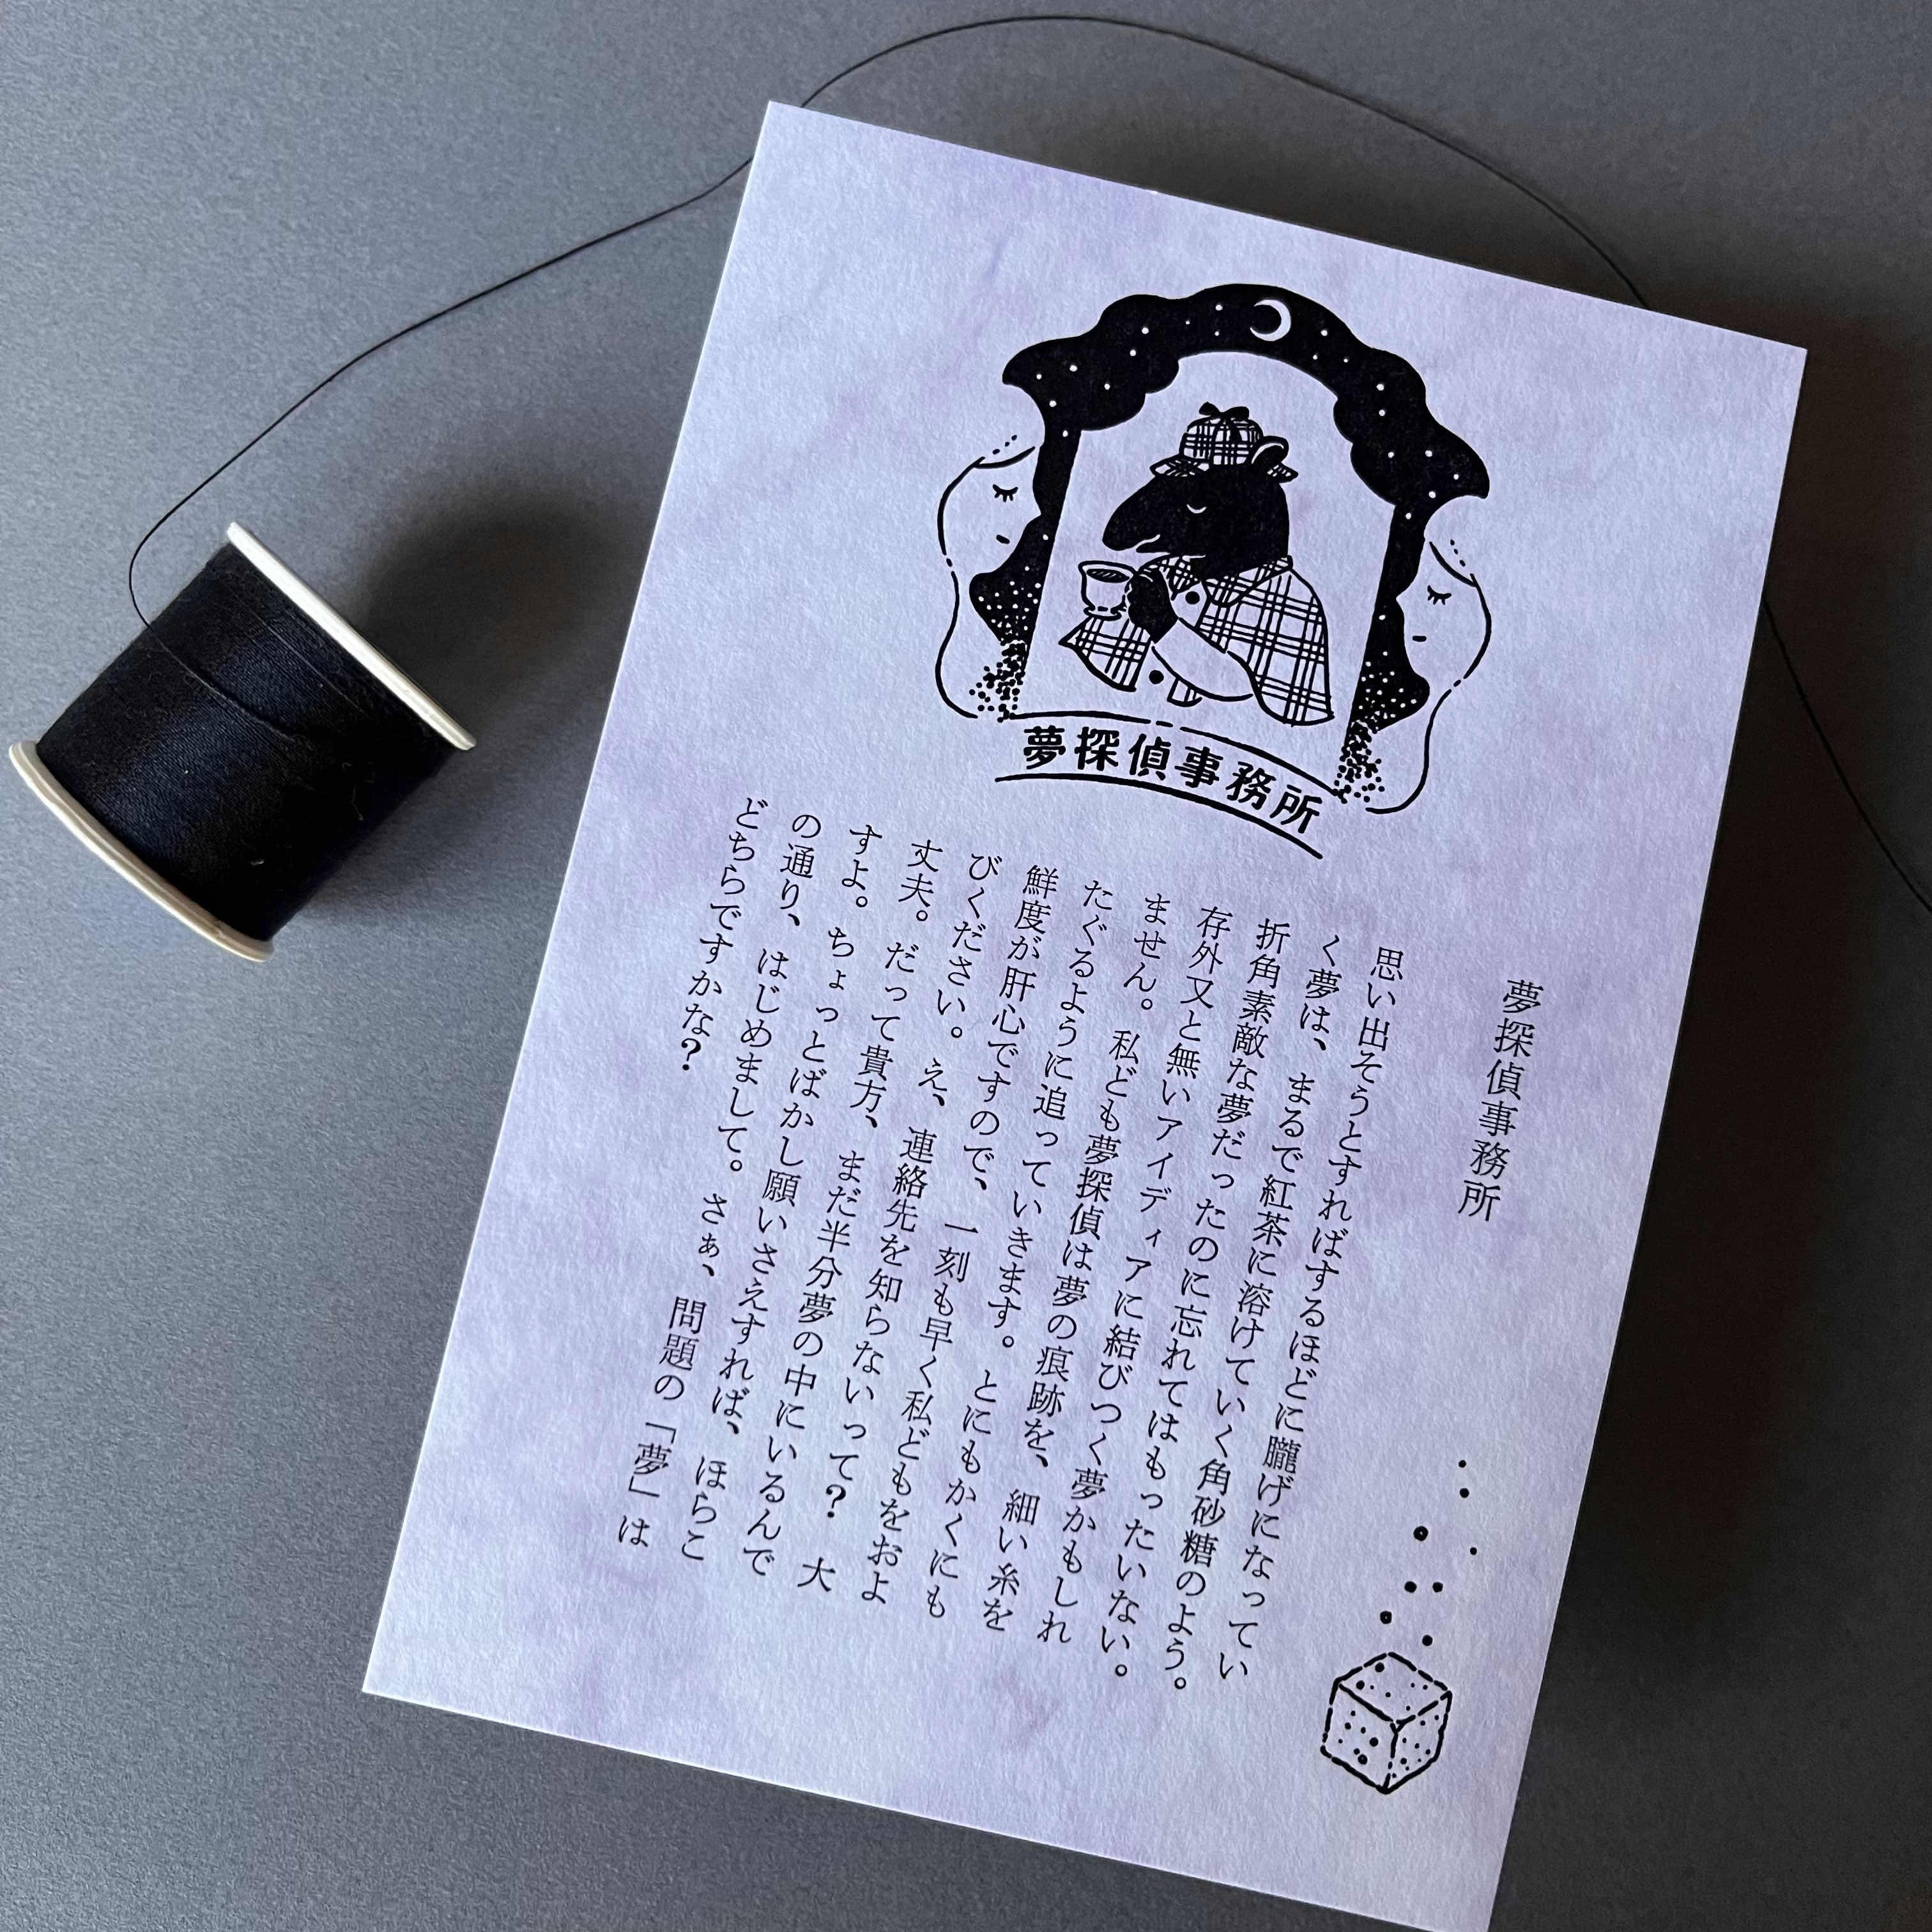 夢探偵事務所
夢探偵事務所
思い出そうとすればするほどに朧げになってい
く夢は、まるで紅茶に溶けていく角砂糖のよう。
折角素敵な夢だったのに忘れてはもったいない。
存外又と無いアイディアに結びつく夢かもしれ
ません。私ども夢探偵は夢の痕跡を、細い糸を
たぐるように追っていきます。とにもかくにも
鮮度が肝心ですので、一刻も早く私どもをおよ
びください。え、連絡先を知らないって？大
丈夫。だって貴方、まだ半分夢の中にいるんで
すよ。ちょっとばかし願いさえすれば、ほらこ
の通り、はじめまして。さぁ、問題の「夢」は
どちらですかな？